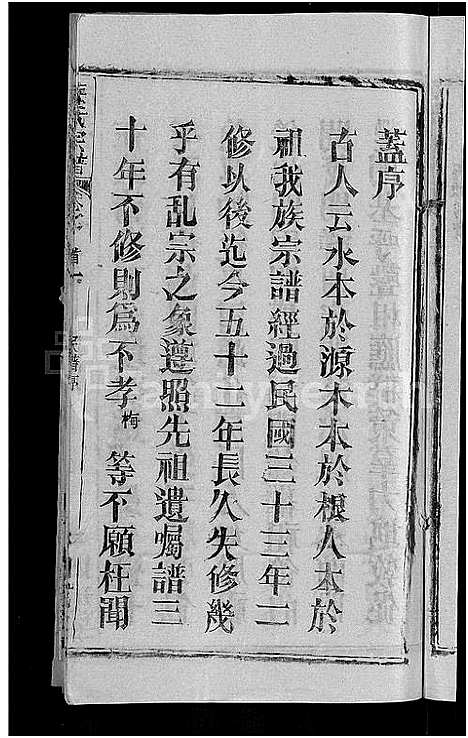 蓋序
古人云水本於源木本於根人本於
祖我族宗譜經過民國三十三年二
修以後迄今五十二年長久失修幾
乎有乱宗之象遵照先祖遺囑譜三
十年不修則為不孝梅等不願枉聞